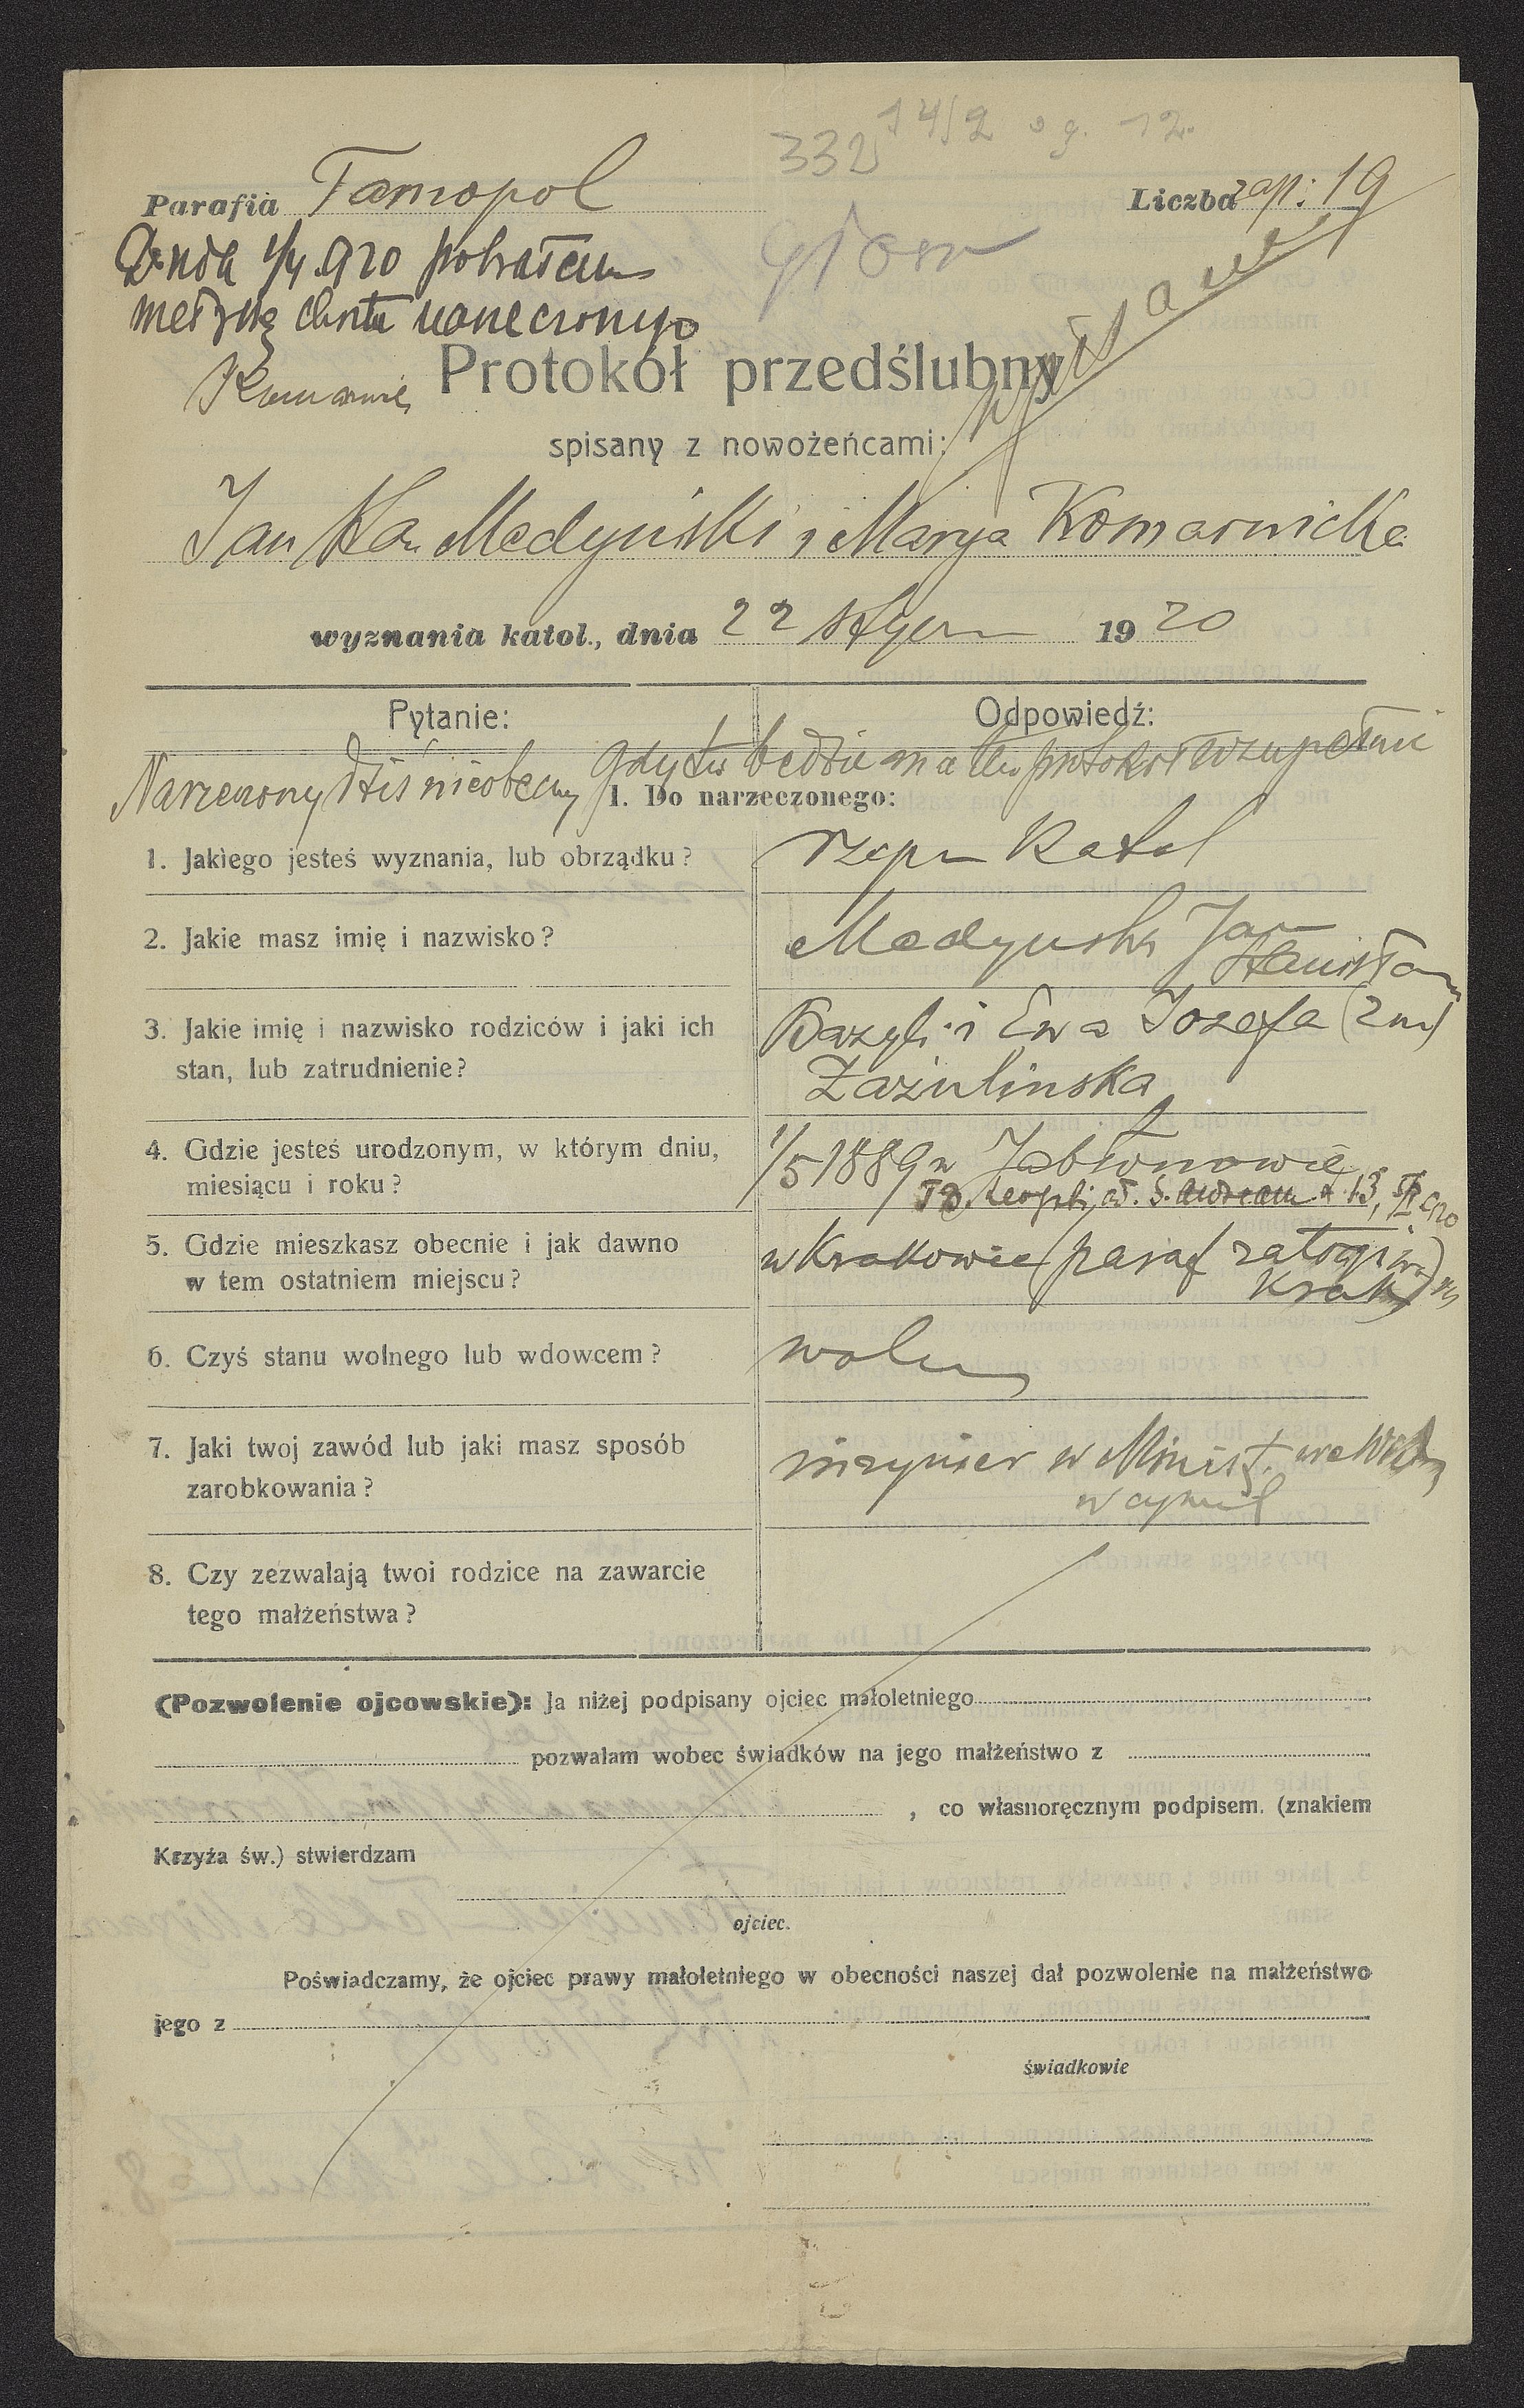 332 14/2 o g. 12.
Parafia Tarnopol
Liczba zap: 19
Dnia 1/4 920 pobrałem
metrykę chrztu narzeczonego
głosz
Protokół przedślubny
spisany z nowożeńcami:
Jan Medyński i Marya Komarnicka
wyznania katol., dnia 22 stycz 1920
Pytanie:
Odpowiedź:
Narzeczony dziś nieobecny gdy tu będzie ma ten protokół uzupełnić
I. Do narzeczonego:
1. Jakiego jesteś wyznania, lub obrządku?
rzym Katol
2. Jakie masz imię i nazwisko?
Medyński Jan
Stanisław
3. Jakie imię i nazwisko rodziców i jaki ich
stan, lub zatrudnienie?
Bazyli i Ewa Józefa (2 im)
Zazulinska
4. Gdzie jesteś urodzonym, w którym dniu,
miesiącu i roku?
1/5 1889 w Jabłonowie
5. Gdzie mieszkasz obecnie i jak dawno
w tem ostatniem miejscu?
w Krakowie (paraf załogi
Krak
6. Czyś stanu wolnego lub wdowcem?
wolny
7. Jaki twoj zawód lub jaki masz sposób
zarobkowania?
inżynier w Minist.
w cywil
8. Czy zezwalają twoi rodzice na zawarcie
tego małżeństwa?
(Pozwolenie ojcowskie): Ja niżej podpisany ojciec małoletniego
pozwalam wobec świadków na jego małżeństwo z
, co własnoręcznym podpisem. (znakiem
Krzyża św.) stwierdzam
ojciec.
Poświadczamy, że ojciec prawy małoletniego w obecności naszej dał pozwolenie na małżeństwo
jego z
świadkowie